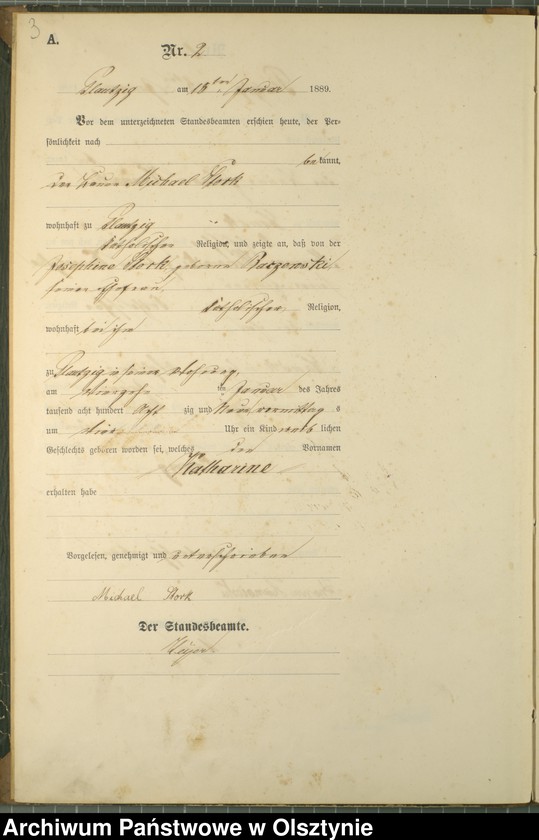 3
A.
Nr. 2
Plautzig am 15ten Januar 1889.
Vor dem unterzeichneten Standesbeamten erschien heute, der Per-
sönlichkeit nach
bekannt,
der Michael Stork
wohnhaft zu Plautzig
katholischer Religion, und zeigte an, daß von der
Josephine Stork geborene Baczewski
seiner Ehefrau,
katholischer Religion,
wohnhaft bei ihm
zu Plautzig in seiner Wohnung,
am vierzehn ten Januar des Jahres
tausend acht hundert acht zig und neun vormittag s
um vier Uhr ein Kind weib lichen
Geschlechts geboren worden sei, welches den Vornamen
Katharine
erhalten habe
Vorgelesen, genehmigt und unterschrieben
Michael Stork
Der Standesbeamte.
Archiwum Państwowe w Olsztynie